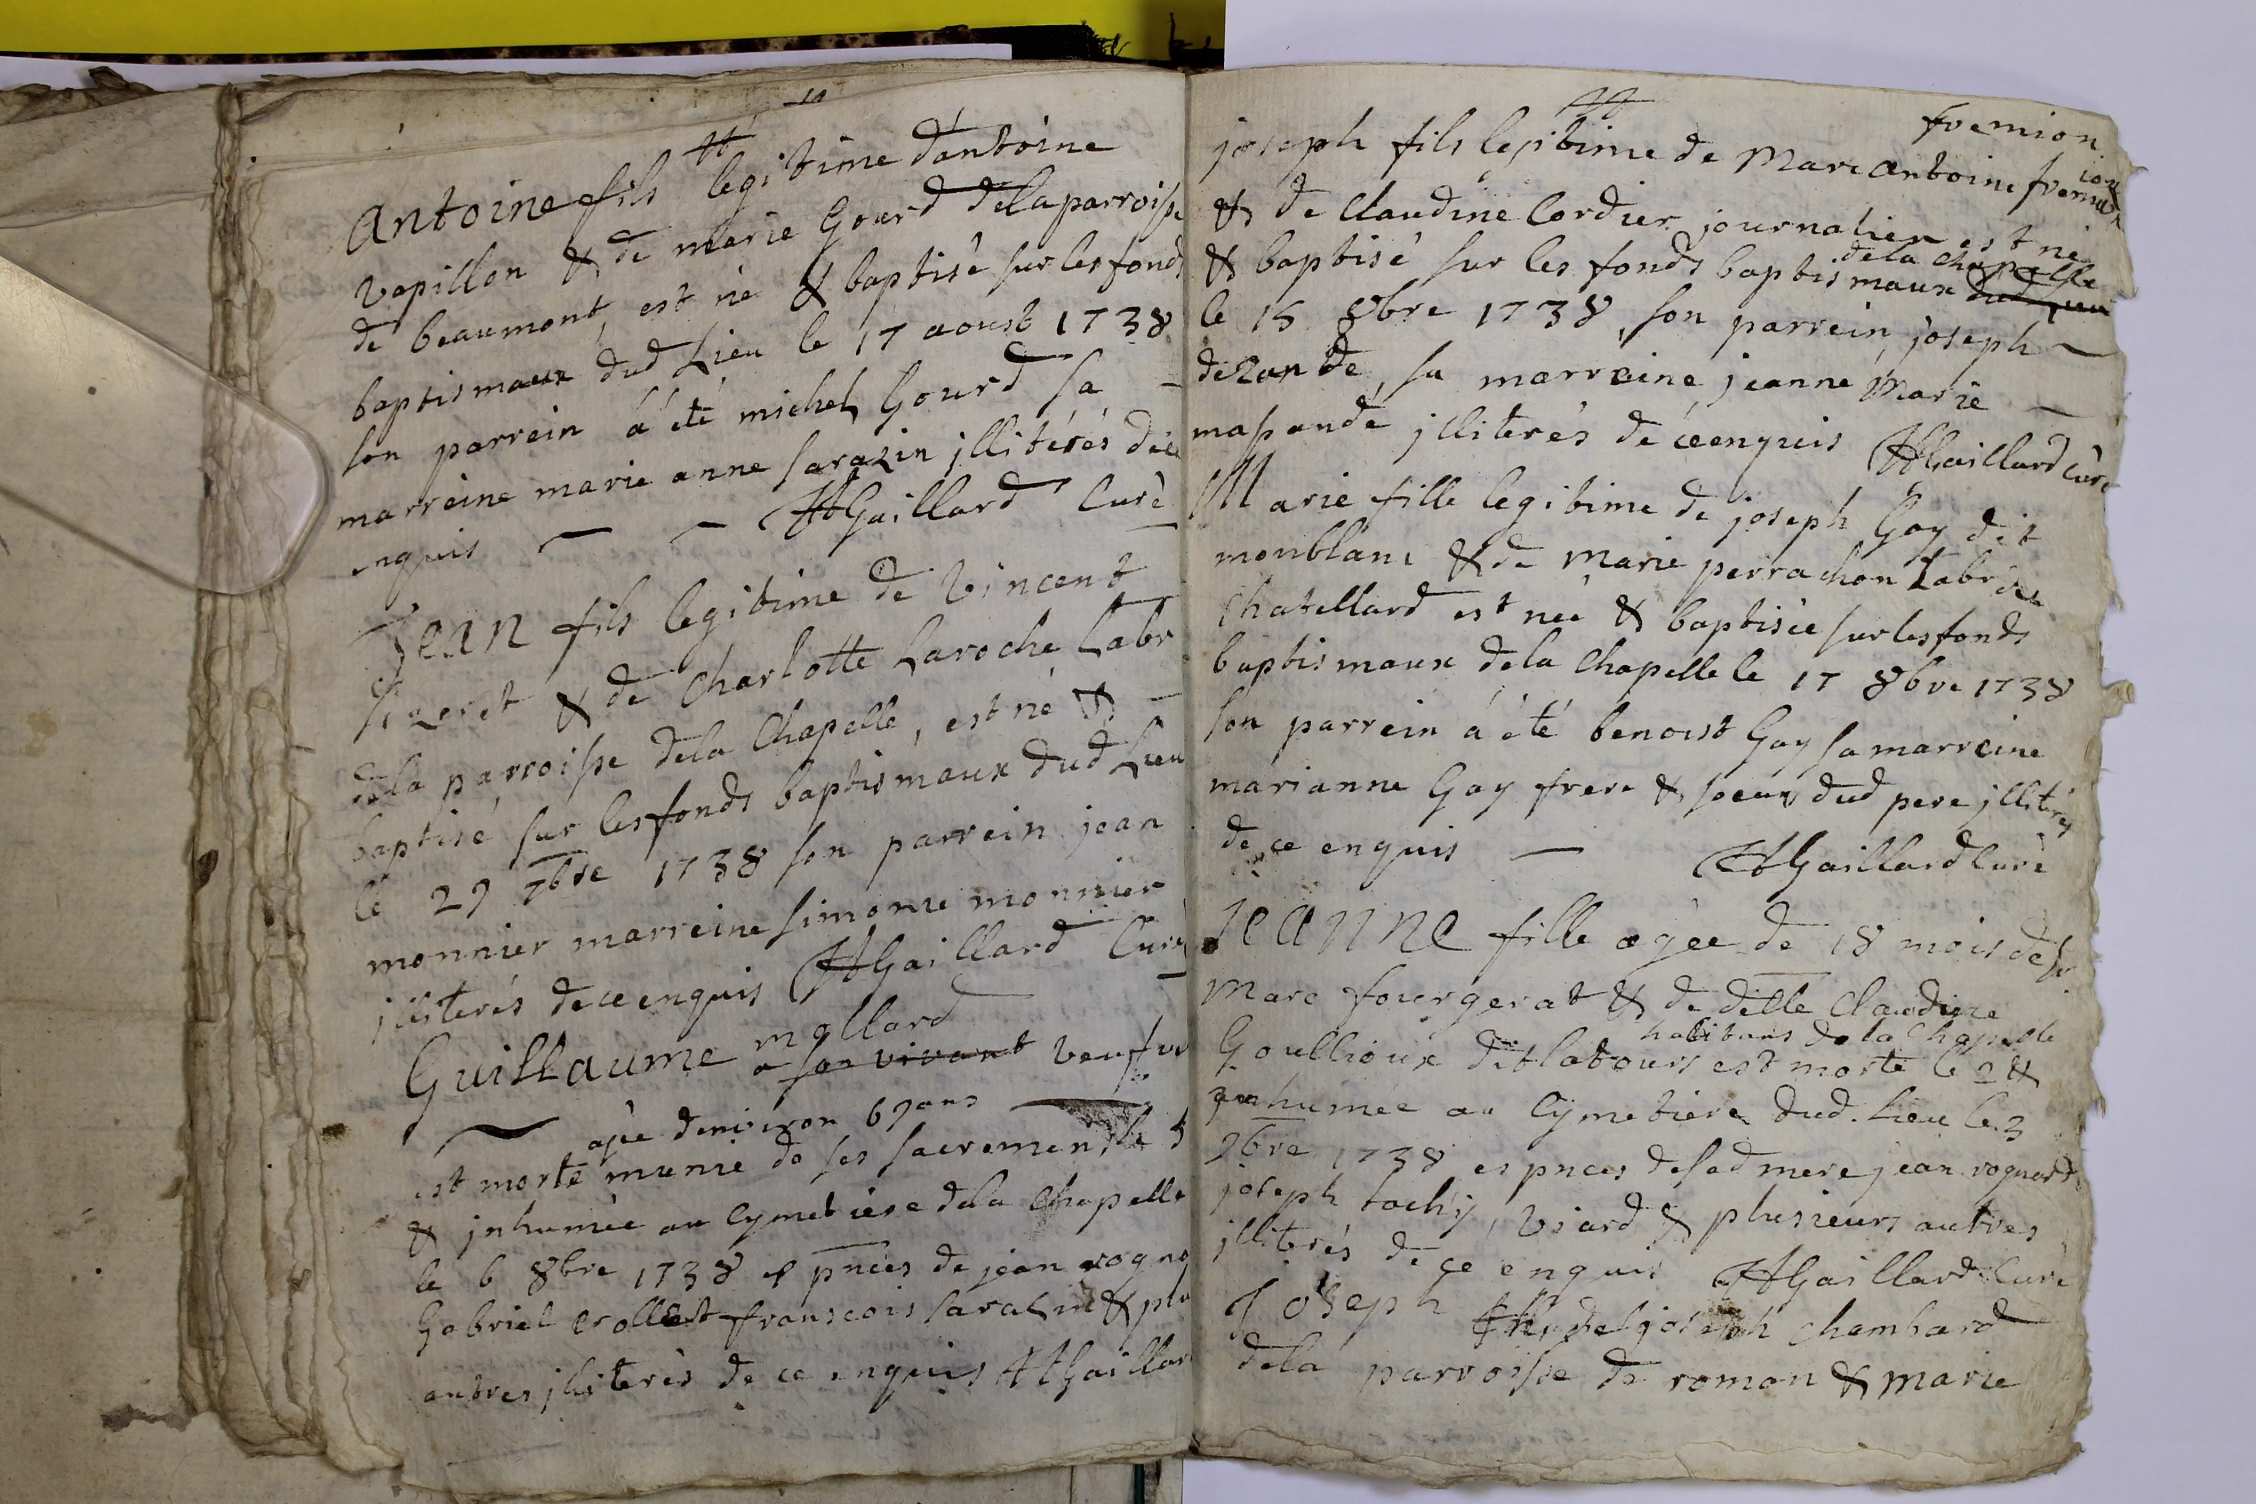 Antoine fils legitime dantoine
vapillon & de marie Gourd de la parroisse
de beaumont, est né & baptisé sur les fonds
baptismaux dud Lieu le 17 aoust 1738
son parrein á été michel Gourd sa —
marreine marie anne sarazin jllitérés de ce
enquis — — Gaillard Curé
Jean fils legitime de Vincent
& de Charlotte Laroche Labr
de la parroisse de la Chapelle, est né & —
baptisé sur les fonds baptismaux dud Lieu
le 29 7bre 1738 son parrein jean
monnier marreine simonne monnier
jlliterés de ce enquis Gaillard Curé
mollard
Guillaume a son vivant veufve
agée denviron 67 ans
est morte munie de ses sacremens le 5
& jnhumée au Cymetiere de la Chapelle
le 6 8bre 1738 es pnces de jean rogna
Gabriel Crollet franscois sarazin & plu
autres jlliterés de ce enquis Gaillard
fremion
joseph fils legitime de Marc antoine
& de Claudine Cordier journalier est né
de la Chapelle
& baptisé sur les fonds baptismaux dud Lieu
le 15 8bre 1738, son parrein, joseph —
dezande, sa marreine jeanne Marie —
massande jlliterés de ce enquis Gaillard Curé
Marie fille legitime de joseph Gay dit
monblanc & de Marie perrachon Labr de
Chatellard est neé & baptisée sur les fonds
baptismaux de la Chapelle le 17 8bre 1738
son parrein á été benoist Gay sa marreine
marianne Gay frere & soeur dud pere jlliterés
de ce enquis — Gaillard Curé
Jeanne fille agée de 18 mois de Sr
Marc fougerat & de delle Claudine
habitans de la Chapelle
Goullioux est morte le 2 &
jnhumée au Cymetiere dud. Lieu le 3
9bre 1738 es pnces de sad mere jean rognard
joseph tachy, viard & plusieurs autres
jlliterés de ce enquis Gaillard Curé
Joseph fils de joseph Chambard
de la parroisse de roman & marie